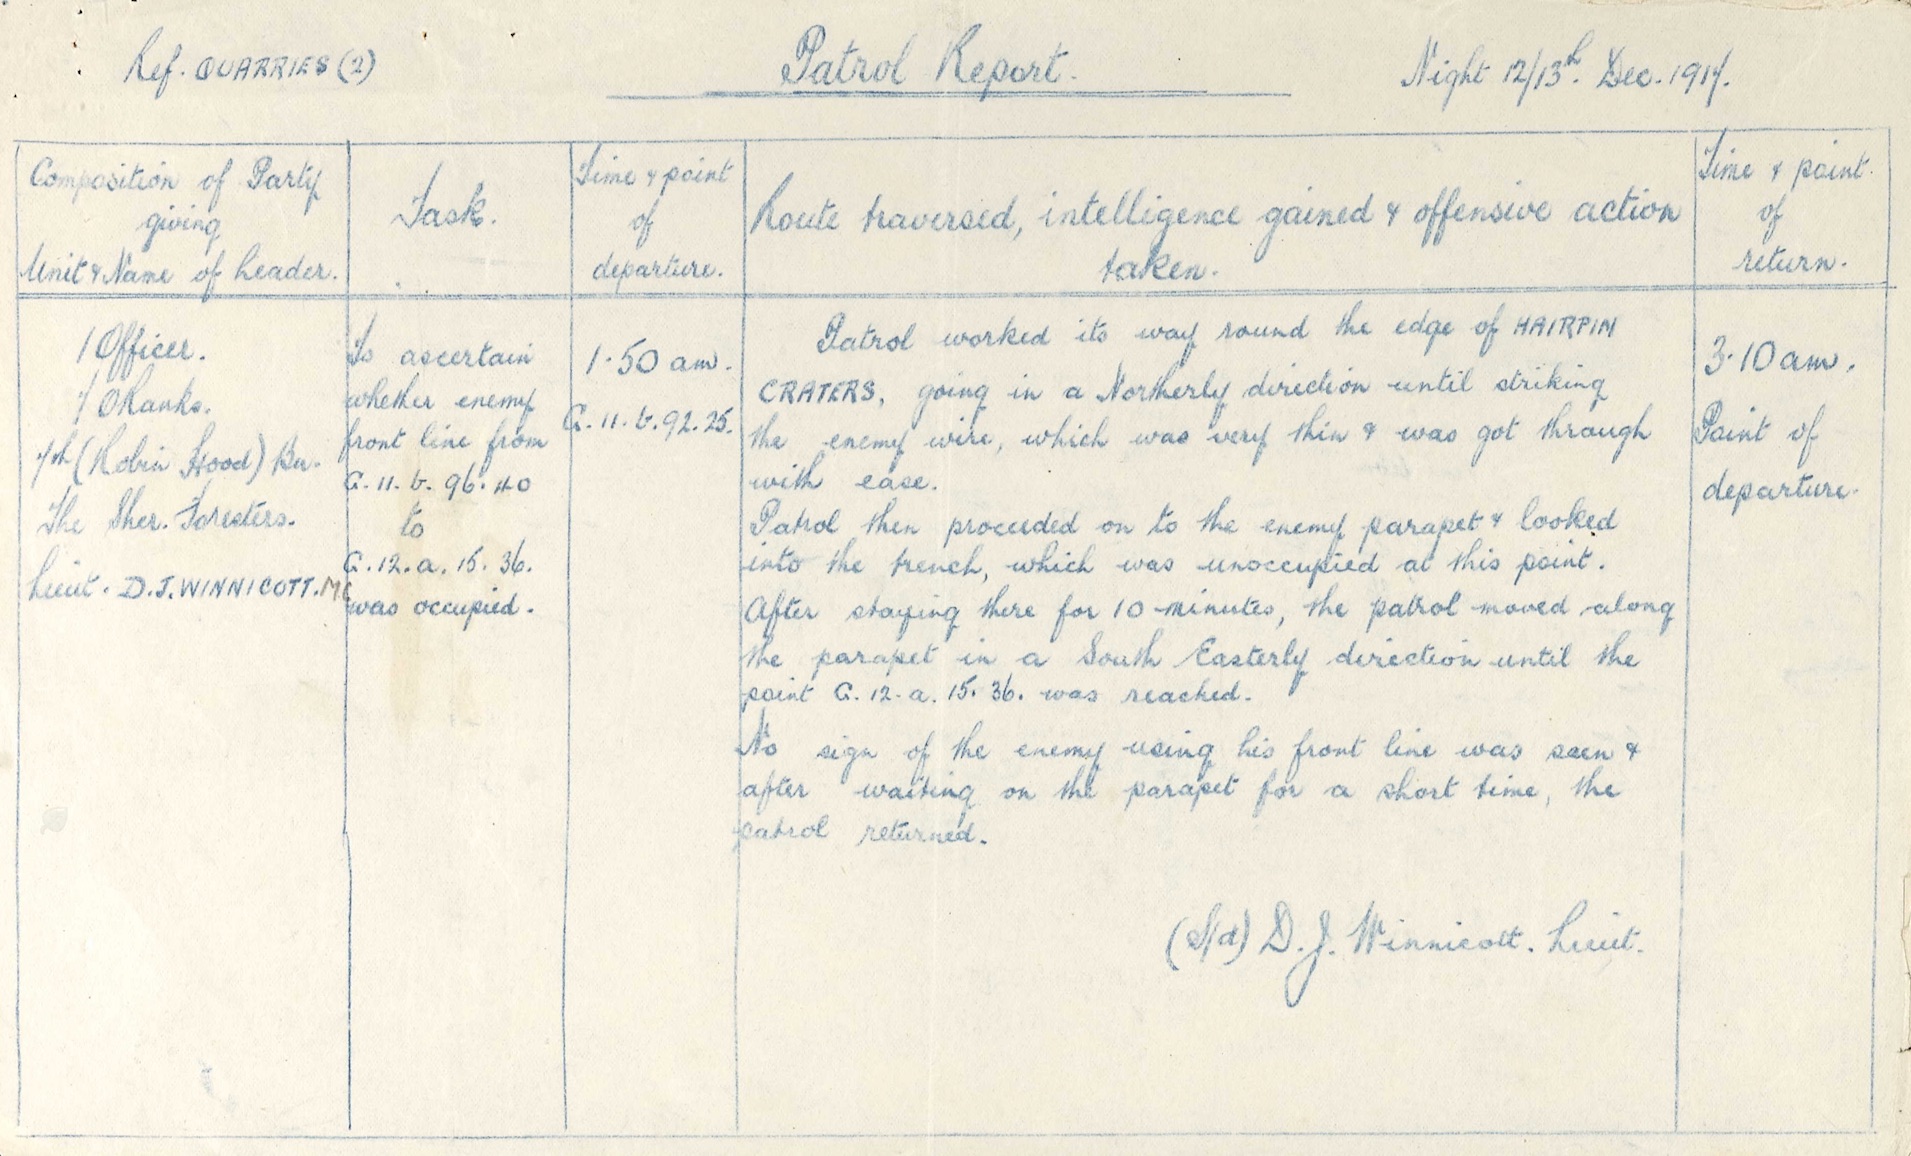 Ref. QUARRIES (2)
Patrol Report.
Night 12/13th. Dec. 1917.
Composition of Party
giving
Unit & Name of Leader.
Task.
Time & point
of
departure.
Route traversed, intelligence gained & offensive action
taken.
Time & point
of
return.
1 Officer.
7 ORanks.
7th (Robin Hood) Bn.
The Sher. Foresters.
Lieut. D.J. WINNICOTT. MC
To ascertain
whether enemy
front line from
G. 11. b. 96. 40
to
G. 12. a. 15. 36.
was occupied.
1.50 am.
G. 11. b. 92. 25.
Patrol worked its way round the edge of HAIRPIN
CRATERS, going in a Northerly direction until striking
the enemy wire, which was very thin & was got through
with ease.
Patrol then proceeded on to the enemy parapet & looked
into the trench, which was unoccupied at this point.
After staying there for 10 minutes, the patrol moved along
the parapet in a South Easterly direction until the
point G. 12. a. 15. 36. was reached.
No sign of the enemy using his front line was seen &
after waiting on the parapet for a short time, the
patrol returned.
(S/d) D. J. Winnicott. Lieut.
3.10 am.
Point of
departure.